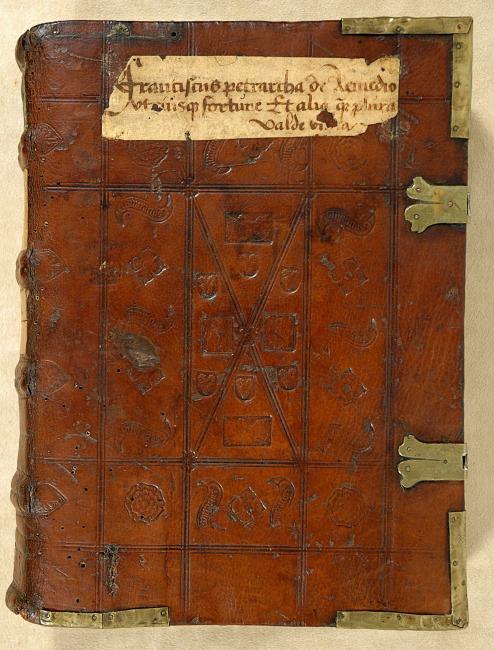 Franciscus petrarcha de Remedio
vtriusq fortune Et alia q̄ plura
Valde